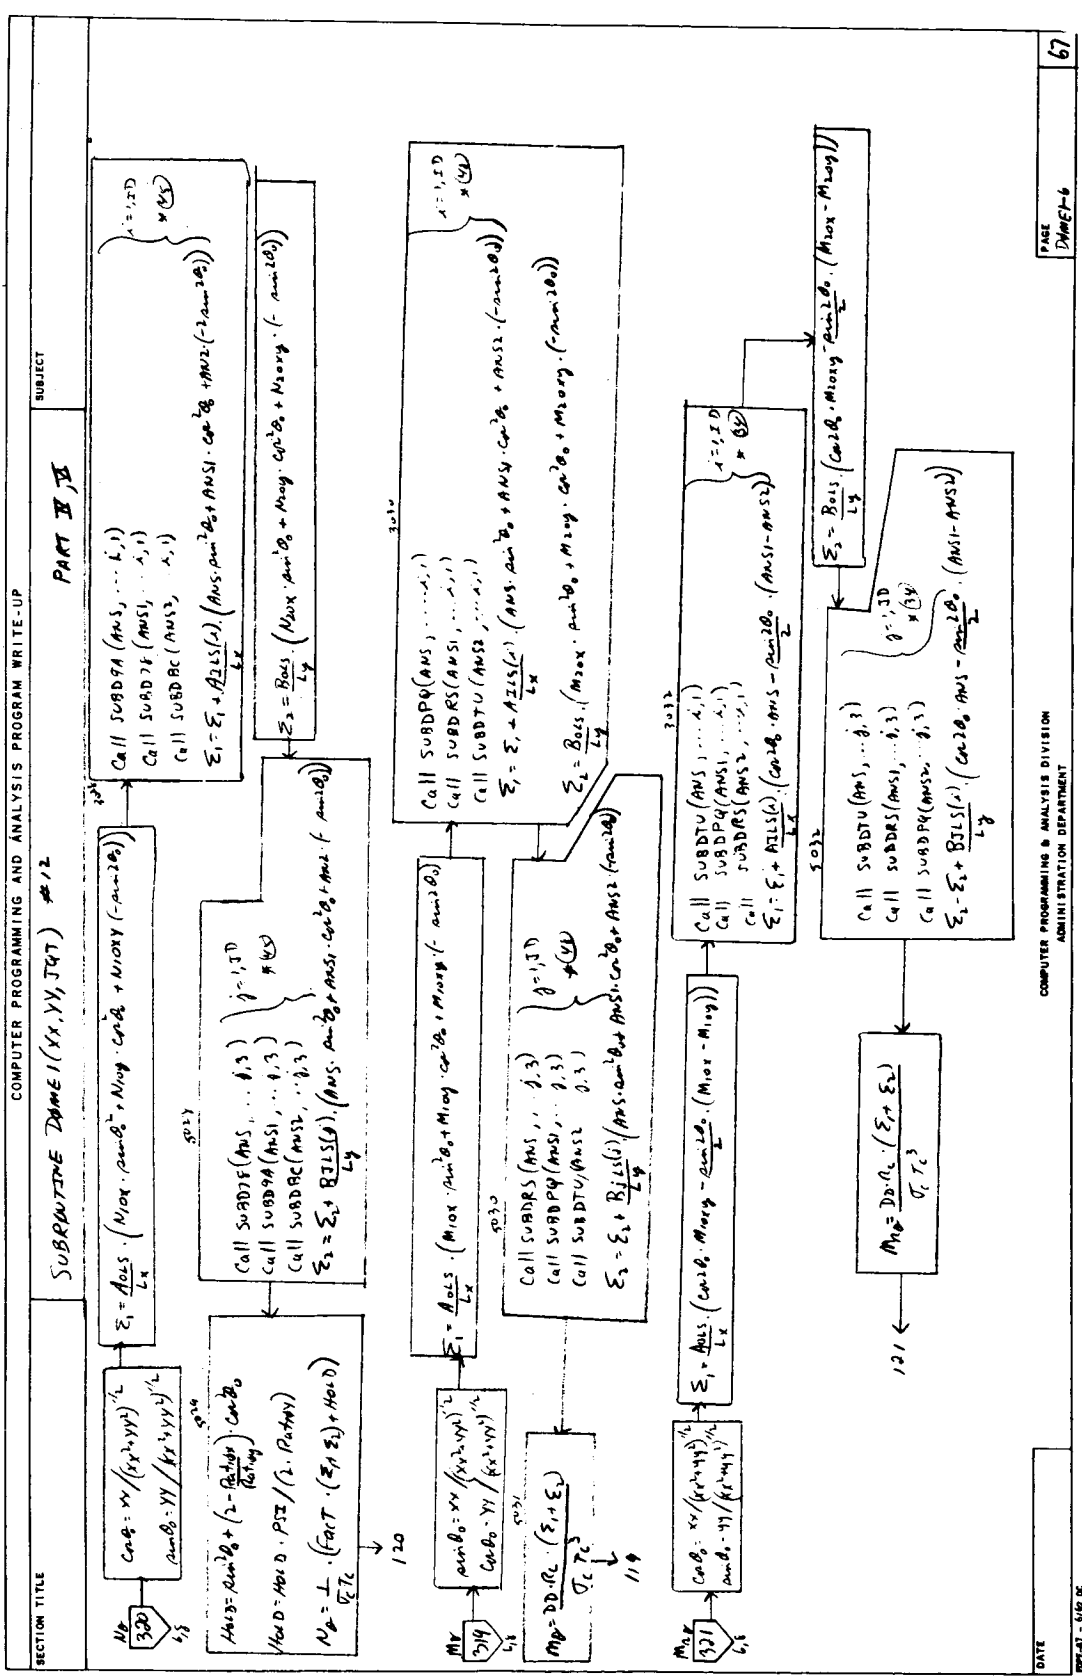 COMPUTER PROGRAMMING AND ANALYSIS PROGRAM WRITE-UP
SECTION TITLE
SUBROUTINE DØME1(XX,YY,JGT) #12
PART IV, V
SUBJECT
Nθ
320
6,8
cosθ₀ = XX/(XX²+YY²)^1/2
sinθ₀ = YY/(XX²+YY²)^1/2
Σ₁ = AOLS/Lx · (N10x · sinθ₀² + N10y · cos²θ₀ + N10xy (-sin2θ₀))
Call SUBD9A(ANS, ... i,1)
Call SUBD7E(ANS1, ... i,1)
Call SUBDBC(ANS2, ... i,1)
i=1,ID
*(48)
Σ₁ = Σ₁ + AILS(i)/Lx · (ANS·sin²θ₀ + ANS1·cos²θ₀ + AN2·(-2sin2θ₀))
Σ₂ = BOLS/Ly · (N20x · sin²θ₀ + N20y · cos²θ₀ + N20xy · (-sin2θ₀))
5029
Call SUBD7E(ANS, ... j,3)
Call SUBD9A(ANS1, ... j,3)
Call SUBDBC(ANS2, ... j,3)
j=1,JD
Σ₂ = Σ₂ + BJLS(j)/Ly · (ANS·sin²θ₀ + ANS1·cos²θ₀ + AN2·(-sin2θ₀))
HOLD = sin²θ₀ + (2 - Ratiox/Ratioy) · cos²θ₀
HOLD = HOLD · PSI/(2·Ratioy)
Nθ = 1/σcTc · (FACT · (Σ₁+Σ₂) + HOLD)
120
Mθ
319
6,8
sinθ₀ = XX/(XX²+YY²)^1/2
cosθ₀ = YY/(XX²+YY²)^1/2
Σ₁ = AOLS/Lx · (M10x · sin²θ₀ + M10y · cos²θ₀ + M10xy · (-sin2θ₀))
3030
Call SUBDPQ(ANS, ... i,1)
Call SUBDRS(ANS1, ... i,1)
Call SUBDTU(ANS2, ... i,1)
i=1,ID
*(48)
Σ₁ = Σ₁ + AILS(i)/Lx · (ANS·sin²θ₀ + ANS1·cos²θ₀ + ANS2·(-sin2θ₀))
Σ₂ = BOLS/Ly · (M20x · sin²θ₀ + M20y · cos²θ₀ + M20xy · (-sin2θ₀))
5030
Call SUBDRS(ANS, ... j,3)
Call SUBDPQ(ANS1, ... j,3)
Call SUBDTU(ANS2 j,3)
j=1,JD
*(48)
Σ₂ = Σ₂ + BJLS(j)/Ly (ANS·sin²θ₀ + ANS1·cos²θ₀ + ANS2·(-sin2θ₀))
5031
Mθ = DD·Rc · (Σ₁+Σ₂)/σcTc³
119
321
6,8
cosθ₀ = XX/(XX²+YY²)^1/2
sinθ₀ = YY/(XX²+YY²)^1/2
Σ₁ = AOLS/Lx · (cos2θ₀ · M10xy - sin2θ₀/2 · (M10x - M10y))
3032
Call SUBDTU(ANS, ... i,1)
Call SUBDPQ(ANS1, ... i,1)
Call SUBDRS(ANS2, ... i,1)
i=1,ID
*(34)
Σ₁ = Σ₁ + AILS(i)/Lx · (cos2θ₀·ANS - sin2θ₀/2 · (ANS1-ANS2))
Σ₂ = BOLS/Ly · (cos2θ₀ · M20xy - sin2θ₀/2 · (M20x - M20y))
5032
Call SUBDTU(ANS, ... j,3)
Call SUBDRS(ANS1, ... j,3)
Call SUBDPQ(ANS2, ... j,3)
j=1,JD
*(34)
Σ₂ = Σ₂ + BJLS(j)/Ly · (cos2θ₀·ANS - sin2θ₀/2 · (ANS1-ANS2))
= DD·Rc · (Σ₁+Σ₂)/σcTc³
121
DATE
COMPUTER PROGRAMMING & ANALYSIS DIVISION
ADMINISTRATION DEPARTMENT
PAGE
DØME1-6
67